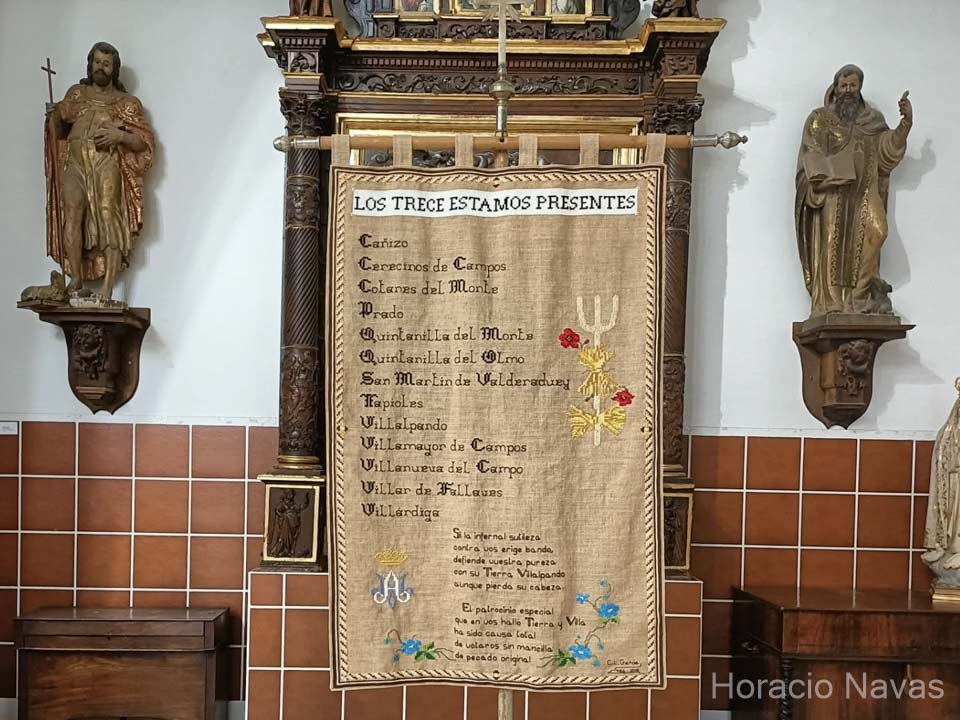 LOS TRECE ESTAMOS PRESENTES
Cañizo
Cerecinos de Campos
Cotanes del Monte
Prado
Quintanilla del Monte
Quintanilla del Olmo
San Martín de Valderaduey
Tapioles
Villalpando
Villamayor de Campos
Villanueva del Campo
Villar de Fallaves
Villárdiga
Si la infernal sutileza
contra vos erige banda,
defiende vuestra pureza
con su Tierra Villalpando
aunque pierda su cabeza.
El patrocinio especial
que en vos halló Tierra y Villa
ha sido causa total
de votaros sin mancilla
de pecado original
Horacio Navas